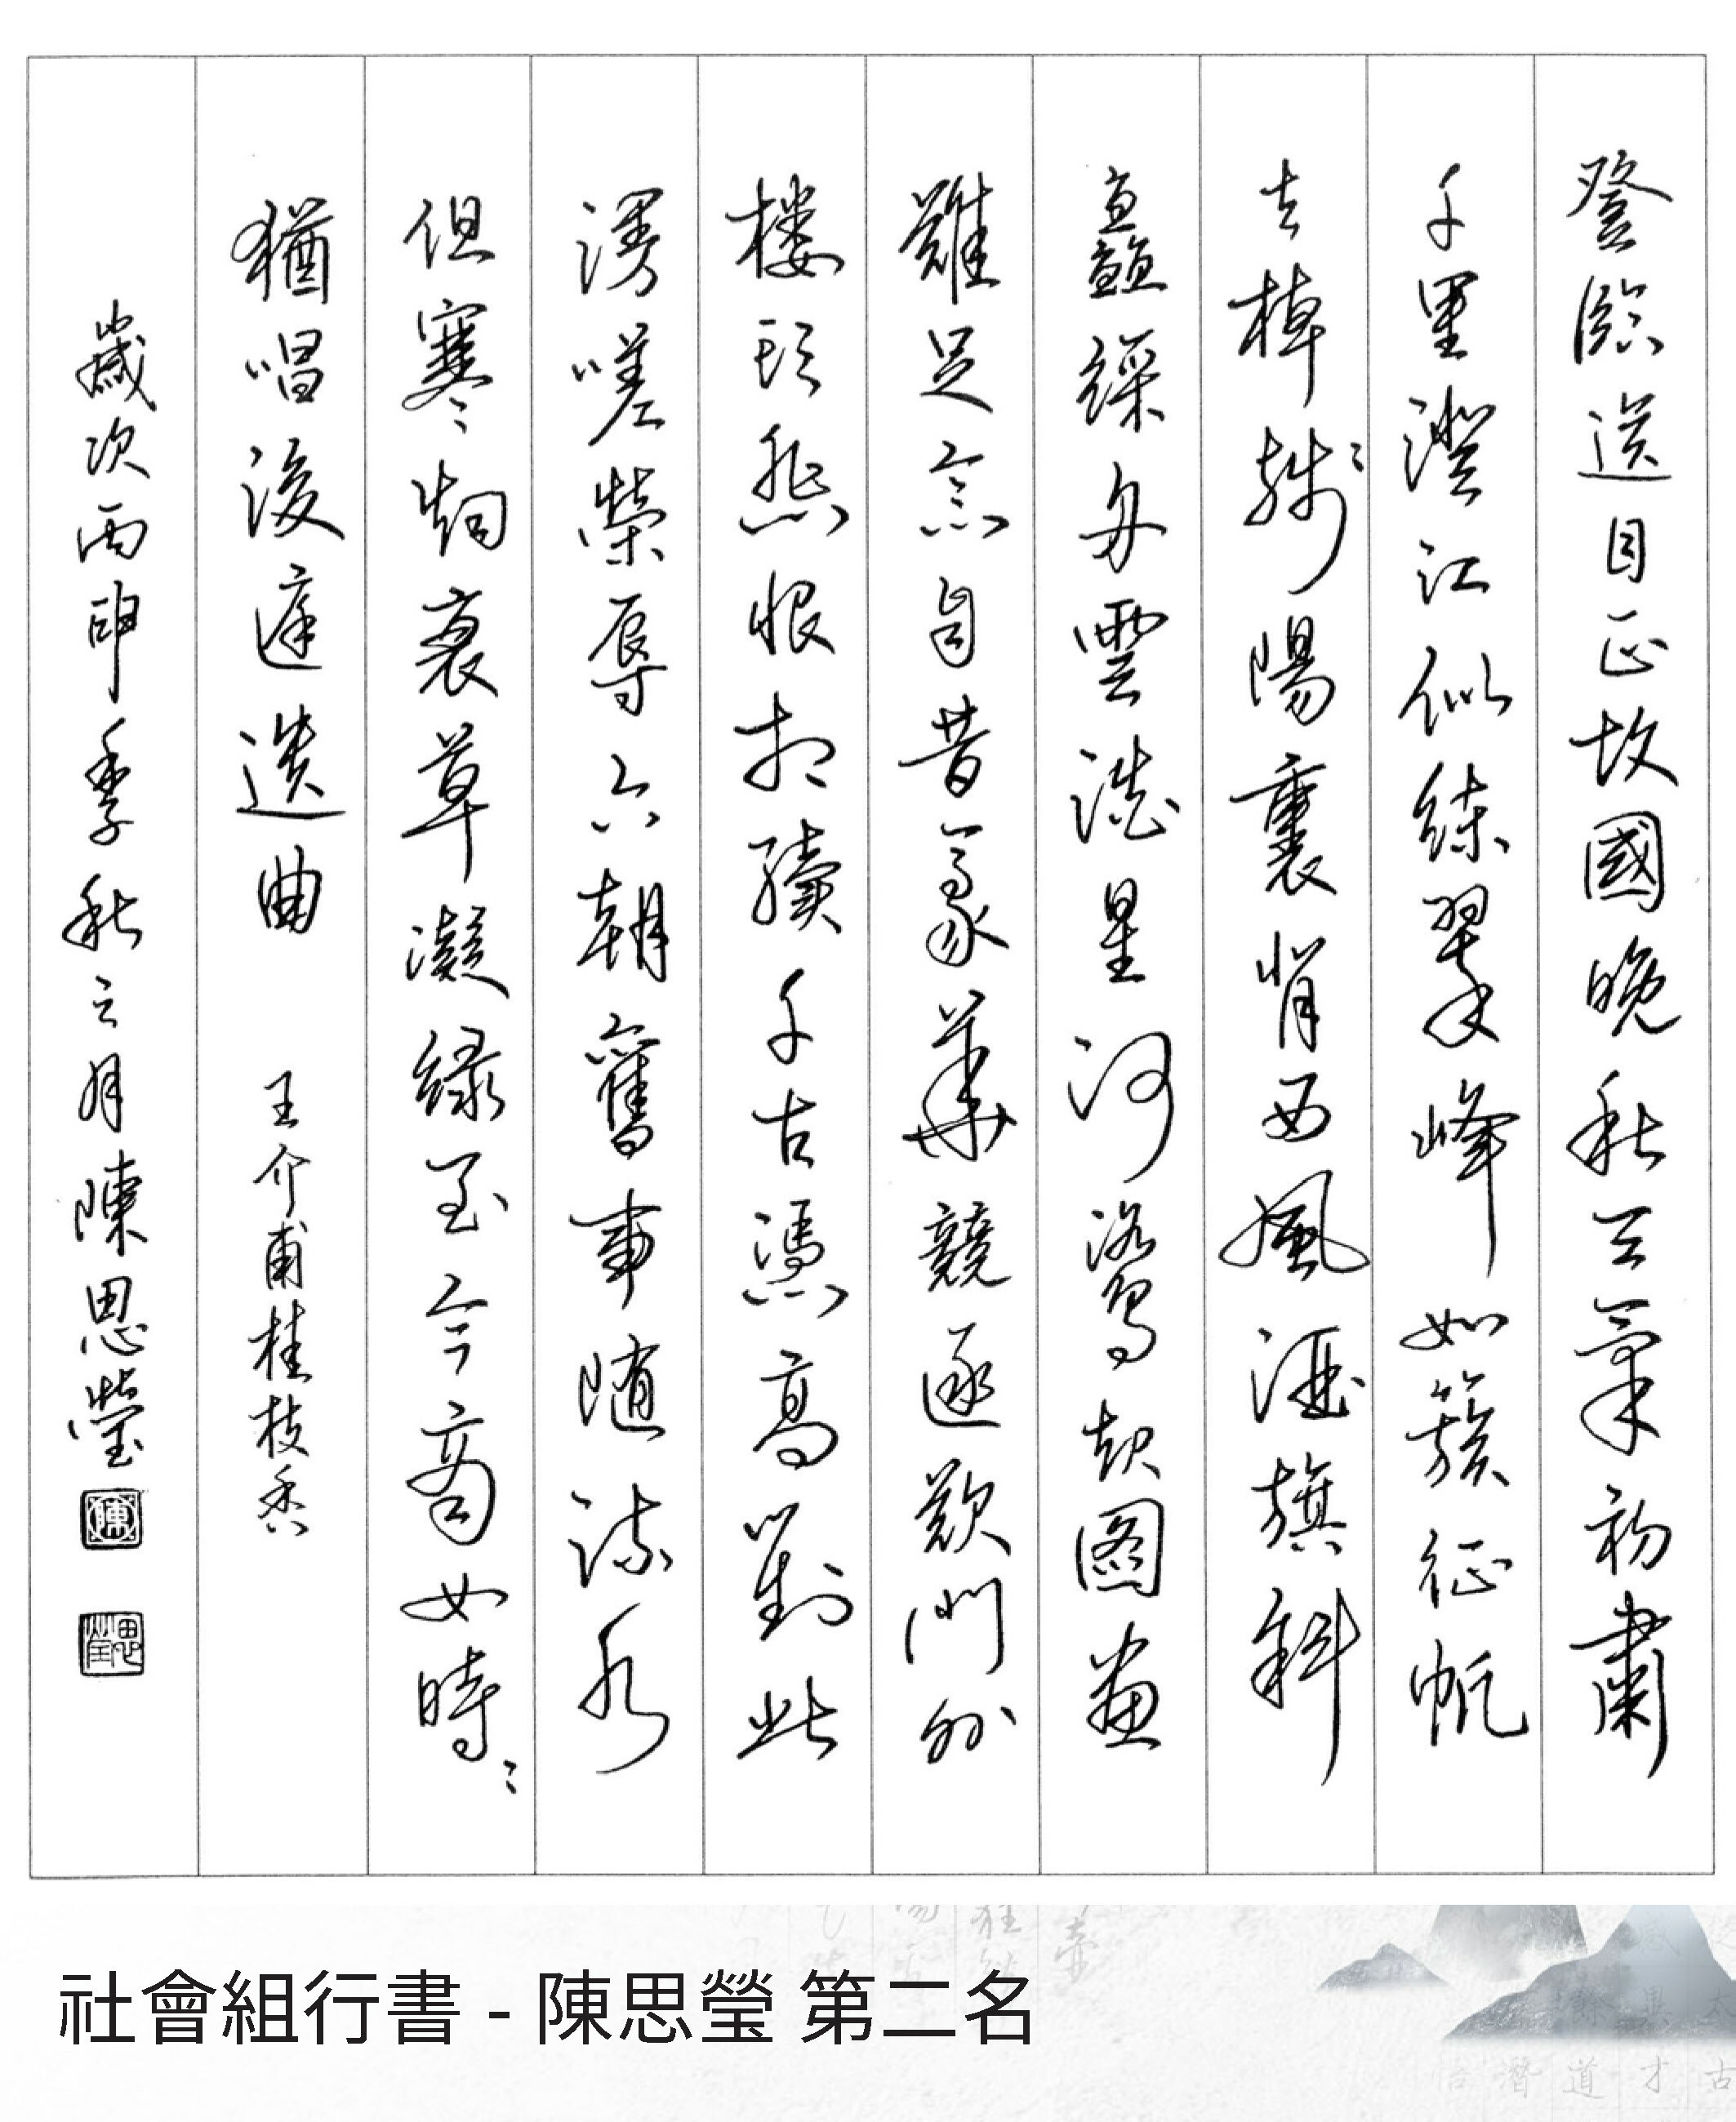 登臨送目正故國晚秋天氣初肅
千里澄江似練翠峰如簇征帆
去棹殘陽裏背西風酒旗斜
矗綵舟雲淡星河鷺起圖畫
難足念自昔豪華競逐歎門外
樓頭悲恨相續千古憑高對此
漫嗟榮辱六朝舊事隨流水
但寒烟衰草凝綠至今商女時〻
猶唱後庭遺曲 王介甫桂枝香
歲次丙申季秋之月陳思瑩
陳
思瑩
社會組行書 - 陳思瑩 第二名